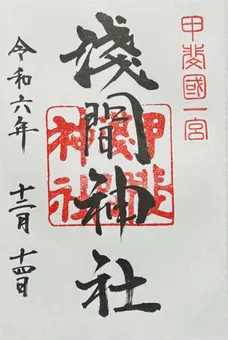 甲斐國一宮
淺間神社
甲斐
神社
令和六年 十二月 十四日